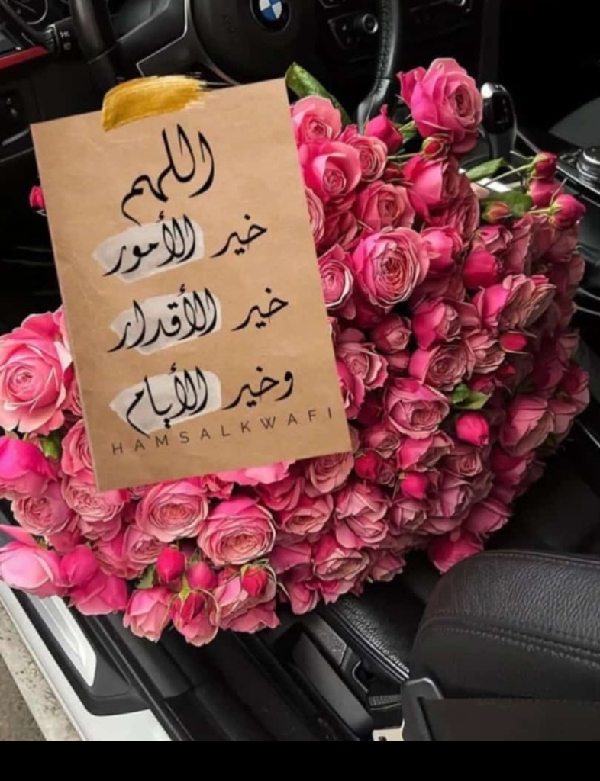 اللهم
خير الأمور
خير الأقدار
وخير الأيام
HAMSALKWAFI